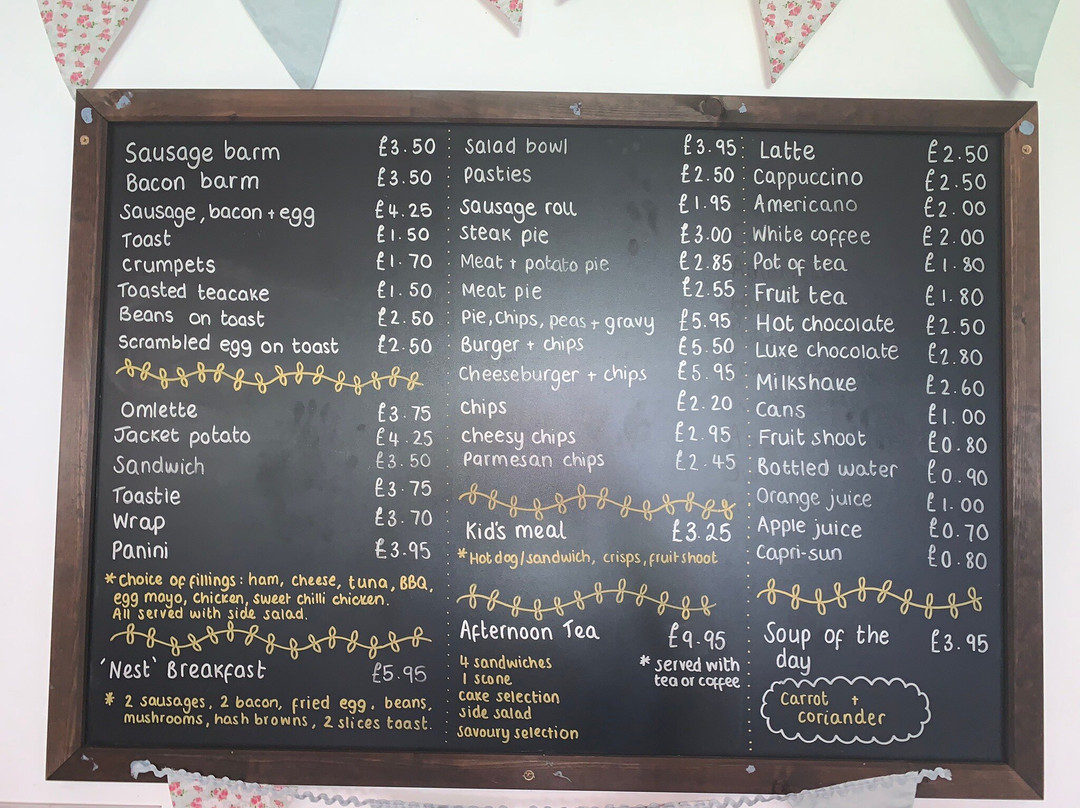 Sausage barm £3.50
Bacon barm £3.50
Sausage, bacon + egg £4.25
Toast £1.50
Crumpets £1.70
Toasted teacake £1.50
Beans on toast £2.50
Scrambled egg on toast £2.50
Omlette £3.75
Jacket potato £4.25
Sandwich £3.50
Toastie £3.75
Wrap £3.70
Panini £3.95
*Choice of fillings: ham, cheese, tuna, BBQ,
egg mayo, chicken, sweet chilli chicken.
All served with side salad.
'Nest' Breakfast £5.95
* 2 sausages, 2 bacon, fried egg, beans,
mushrooms, hash browns, 2 slices toast.
Salad bowl £3.95
Pasties £2.50
Sausage roll £1.95
Steak pie £3.00
Meat + potato pie £2.85
Meat pie £2.55
Pie, chips, peas + gravy £5.95
Burger + chips £5.50
Cheeseburger + chips £5.95
Chips £2.20
Cheesy chips £2.95
Parmesan chips £2.45
Kid's meal £3.25
*Hot dog/sandwich, crisps, fruitshoot
Afternoon Tea £9.95
4 sandwiches
1 scone
cake selection
side salad
savoury selection
* served with
tea or coffee
Latte £2.50
Cappuccino £2.50
Americano £2.00
White coffee £2.00
Pot of tea £1.80
Fruit tea £1.80
Hot chocolate £2.50
Luxe chocolate £2.80
Milkshake £2.60
Cans £1.00
Fruit shoot £0.80
Bottled water £0.90
Orange juice £1.00
Apple juice £0.70
Capri-sun £0.80
Soup of the £3.95
day
Carrot +
coriander